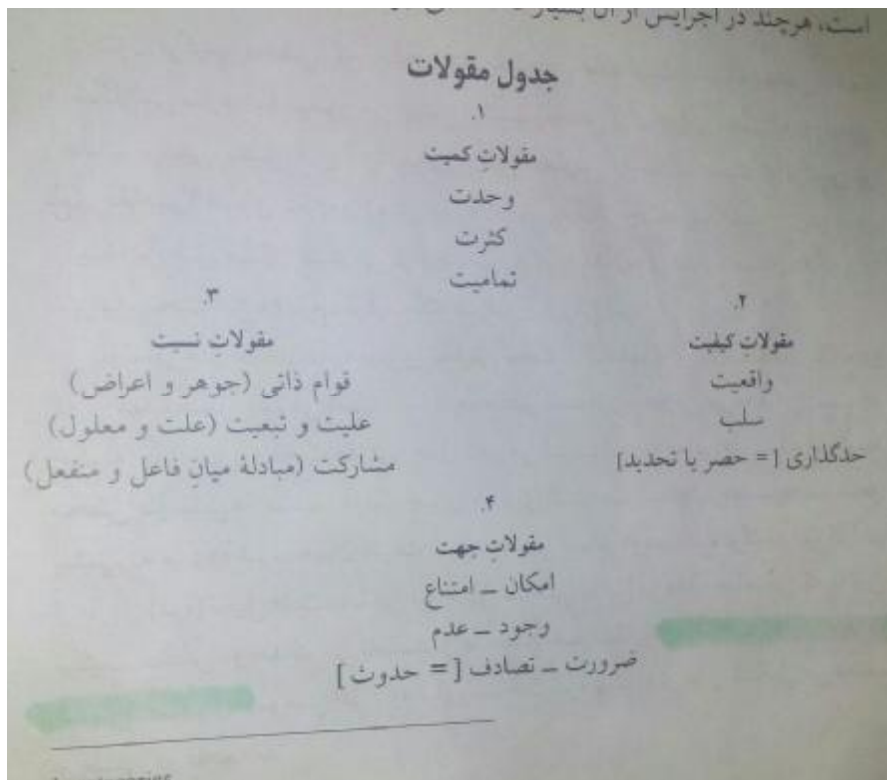 است، هرچند در اجرایش از آن
جدول مقولات
۱.
مقولاتِ کمیت
وحدت
کثرت
تمامیت
۲.
مقولاتِ کیفیت
واقعیت
سلب
حدگذاری [= حصر یا تحدید]
۳.
مقولاتِ نسبت
قوام ذاتی (جوهر و اعراض)
علیت و تبعیت (علت و معلول)
مشارکت (مبادلهٔ میانِ فاعل و منفعل)
۴.
مقولاتِ جهت
امکان ــ امتناع
وجود ــ عدم
ضرورت ــ تصادف [= حدوث]